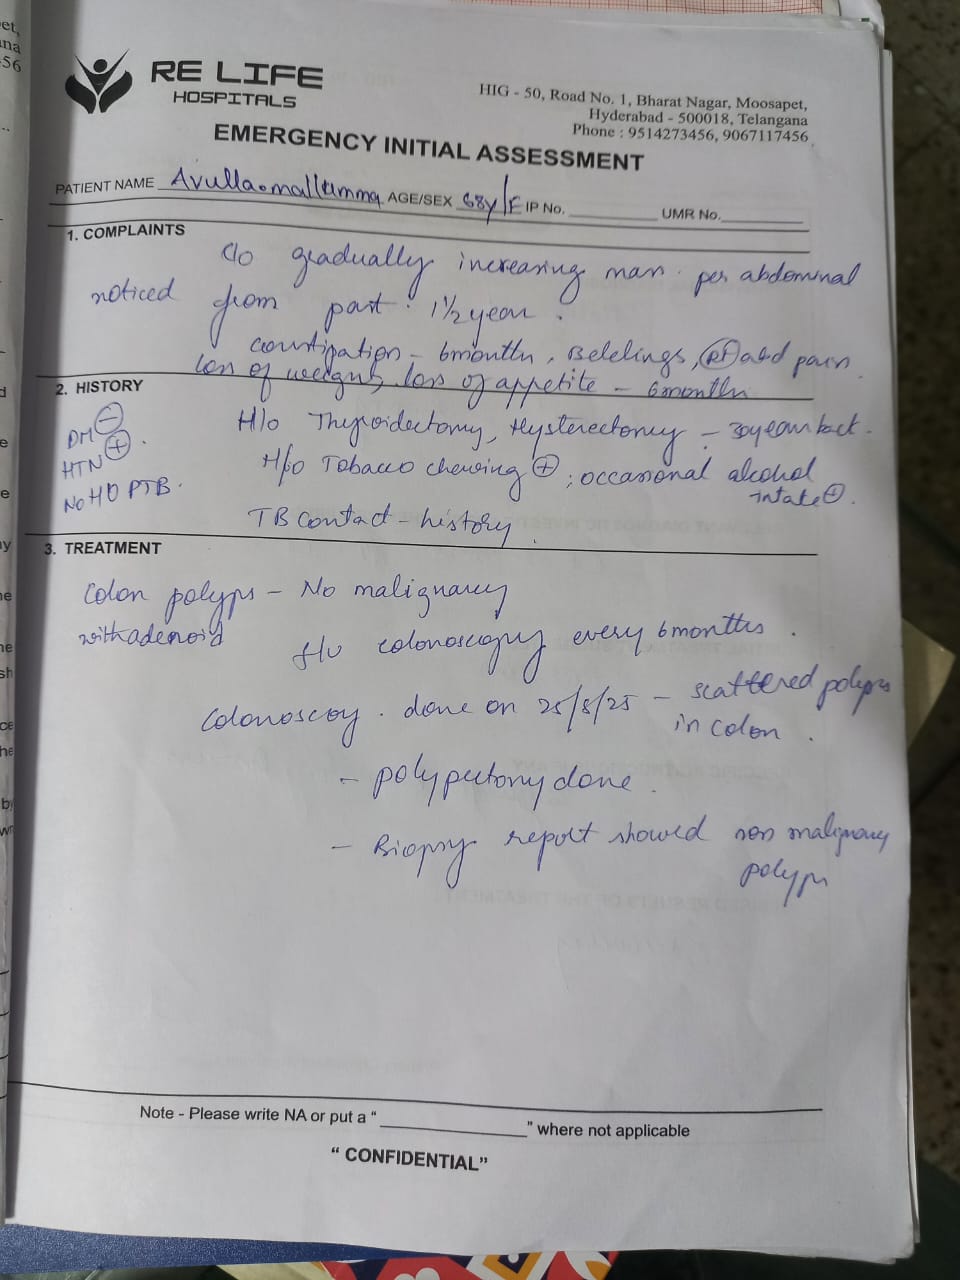 et,
ana
56
RE LIFE
HOSPITALS
HIG - 50, Road No. 1, Bharat Nagar, Moosapet,
Hyderabad - 500018, Telangana
Phone : 9514273456, 9067117456
EMERGENCY INITIAL ASSESSMENT
PATIENT NAME AGE/SEX 68y/F IP No. UMR No.
1. COMPLAINTS
C/o gradually increasing mass per abdominal
noticed from past 1 1/2 year.
constipation - 6months, Belchings, abd pain
loss of weight, loss of appetite - 6months
2. HISTORY
DM ⊖
HTN ⊕.
No H/O PTB.
H/o Thyroidectomy, Hysterectomy - 30years back.
H/o Tobacco chewing ⊕; occasional alcohol
intake ⊕.
TB contact - history.
3. TREATMENT
Colon polyps - No malignancy
with adenoid
f/u colonoscopy every 6months.
Colonoscoy. done on 25/8/25 - scattered polyps
in colon.
- polypectomy done.
- Biopsy report showed non malignancy
polyps
Note - Please write NA or put a " " where not applicable
" CONFIDENTIAL"